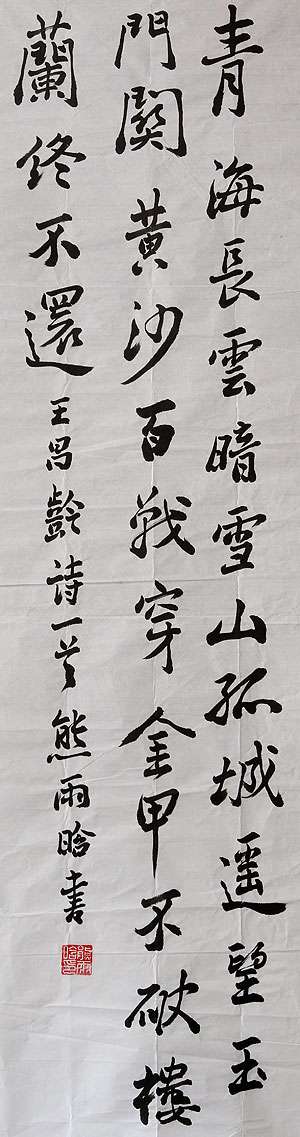 青海長雲暗雪山孤城遥望玉
門關黄沙百戰穿金甲不破樓
蘭終不還 王昌齡詩一首 熊雨晗書
熊雨晗印